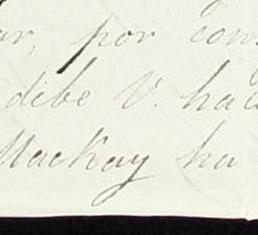 ar, por con
debe V. hac
MacKay ha